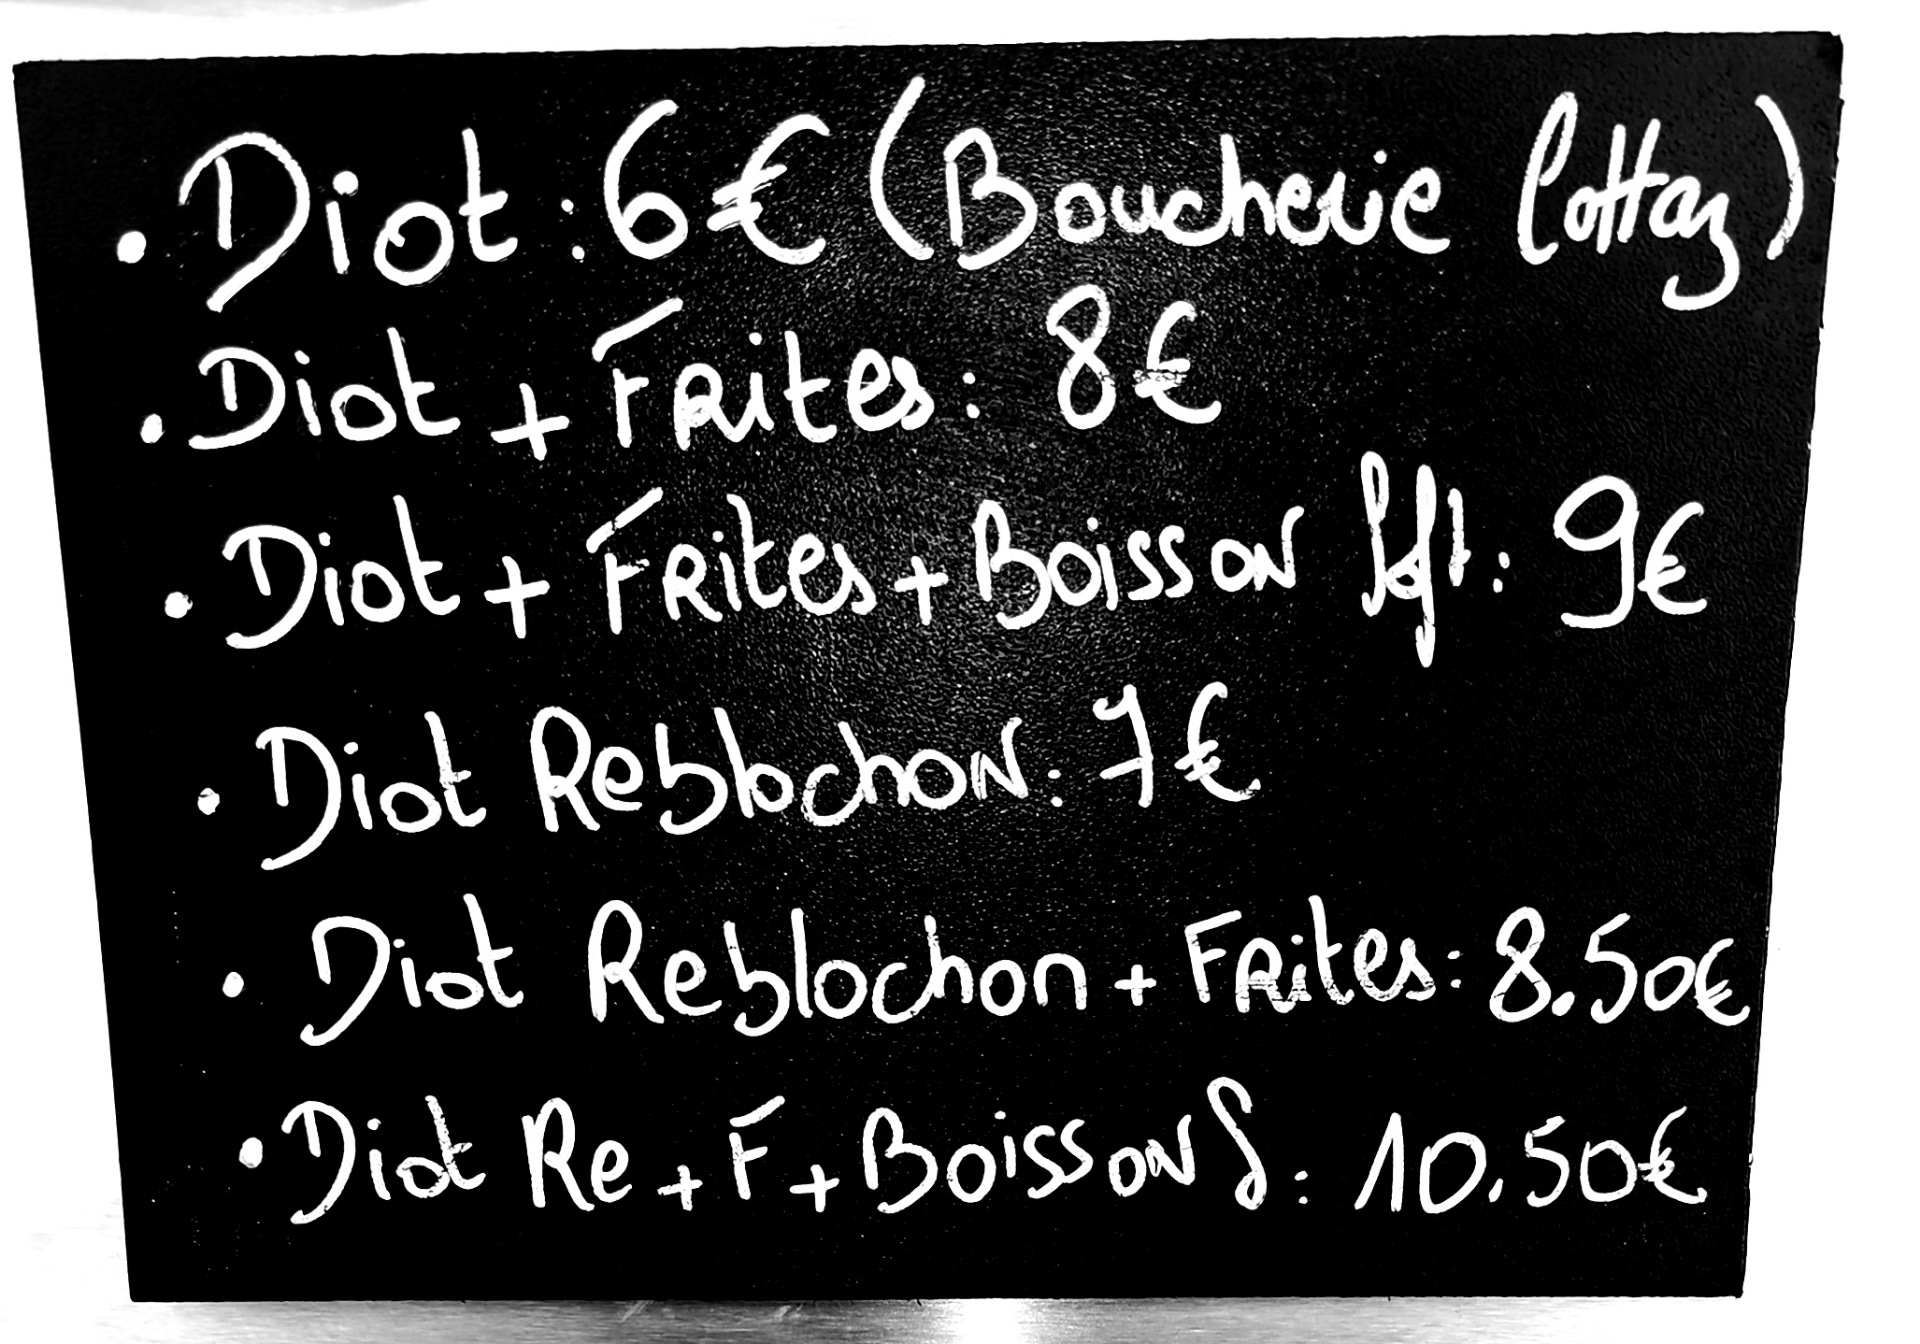 • Diot : 6€ (Boucherie Cottaz)
• Diot + Frites : 8€
• Diot + Frites + Boisson Soft : 9€
• Diot Reblochon : 7€
• Diot Reblochon + Frites : 8.50€
• Diot Re + F + Boisson S : 10.50€